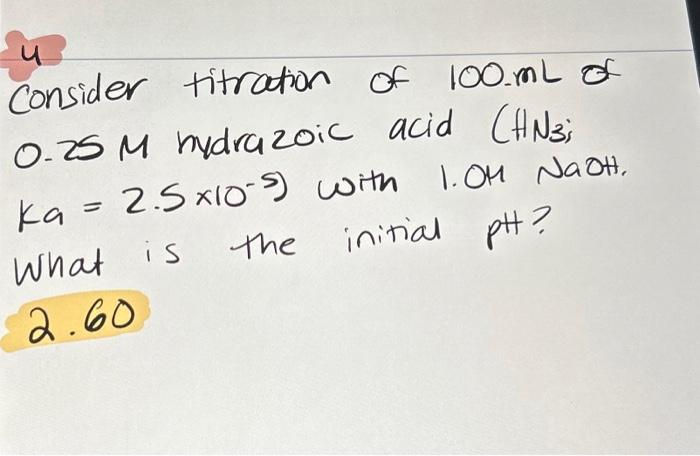 4
Consider titration of 100.mL of
0.25 M hydrazoic acid (HN3;
Ka = 2.5 x10-5) with 1.0M NaOH.
What is the initial pH?
2.60